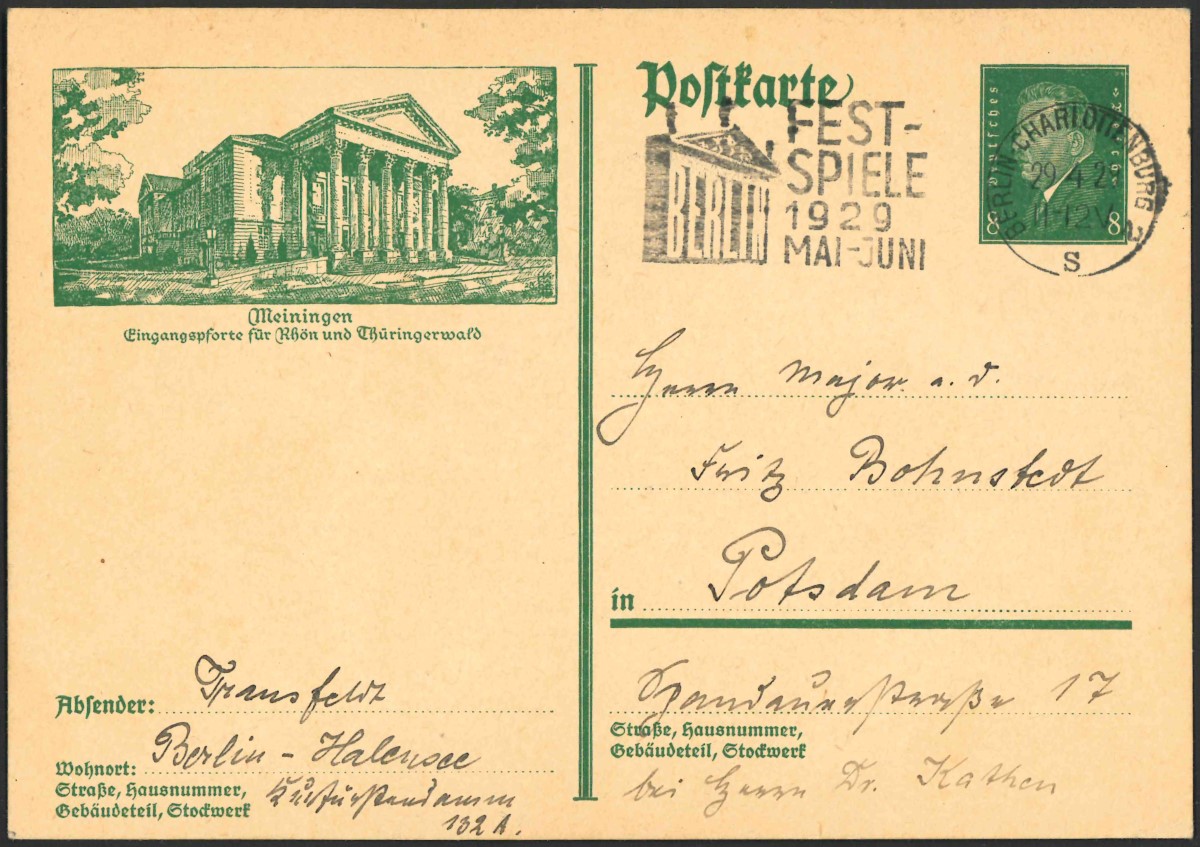 Meiningen
Eingangspforte für Rhön und Thüringerwald
Absender: Transfeldt
Wohnort: Berlin-Halensee
Straße, Hausnummer, Kurfürstendamm
Gebäudeteil, Stockwerk 132 A.
Postkarte
BERLIN
FEST-
SPIELE
1929
MAI-JUNI
8 8
BERLIN-CHARLOTTENBURG 2
29.4.2
11-12V
S
Herrn Major a. d.
Fritz Bohnstedt
in Potsdam
Spandauerstraße 17
Straße, Hausnummer,
Gebäudeteil, Stockwerk
bei Herrn Dr. Kathen